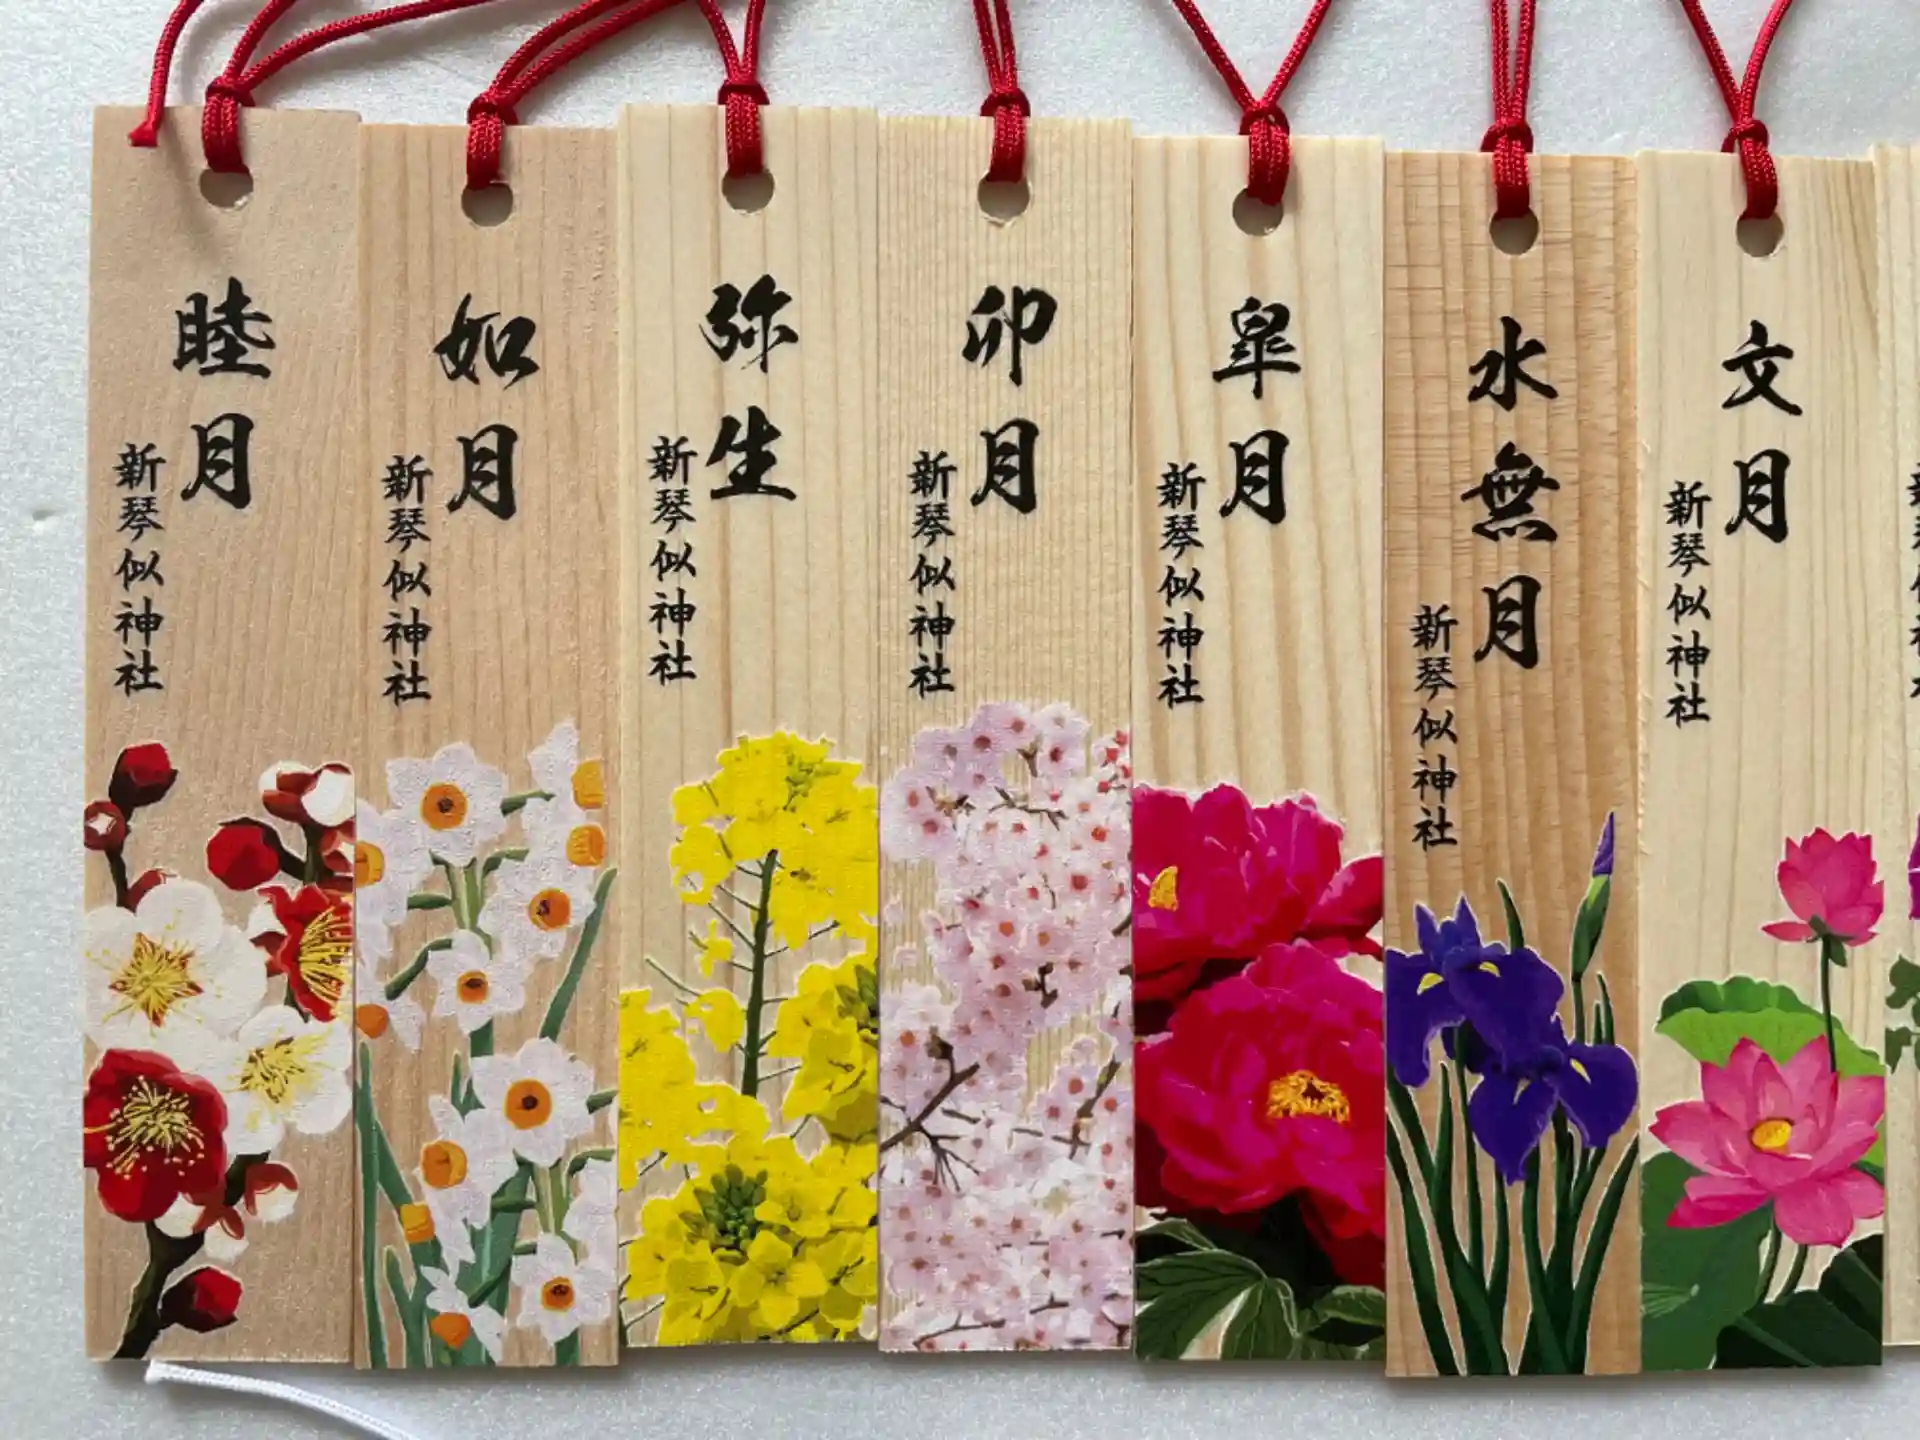 睦月
新琴似神社
如月
新琴似神社
弥生
新琴似神社
卯月
新琴似神社
皐月
新琴似神社
水無月
新琴似神社
文月
新琴似神社